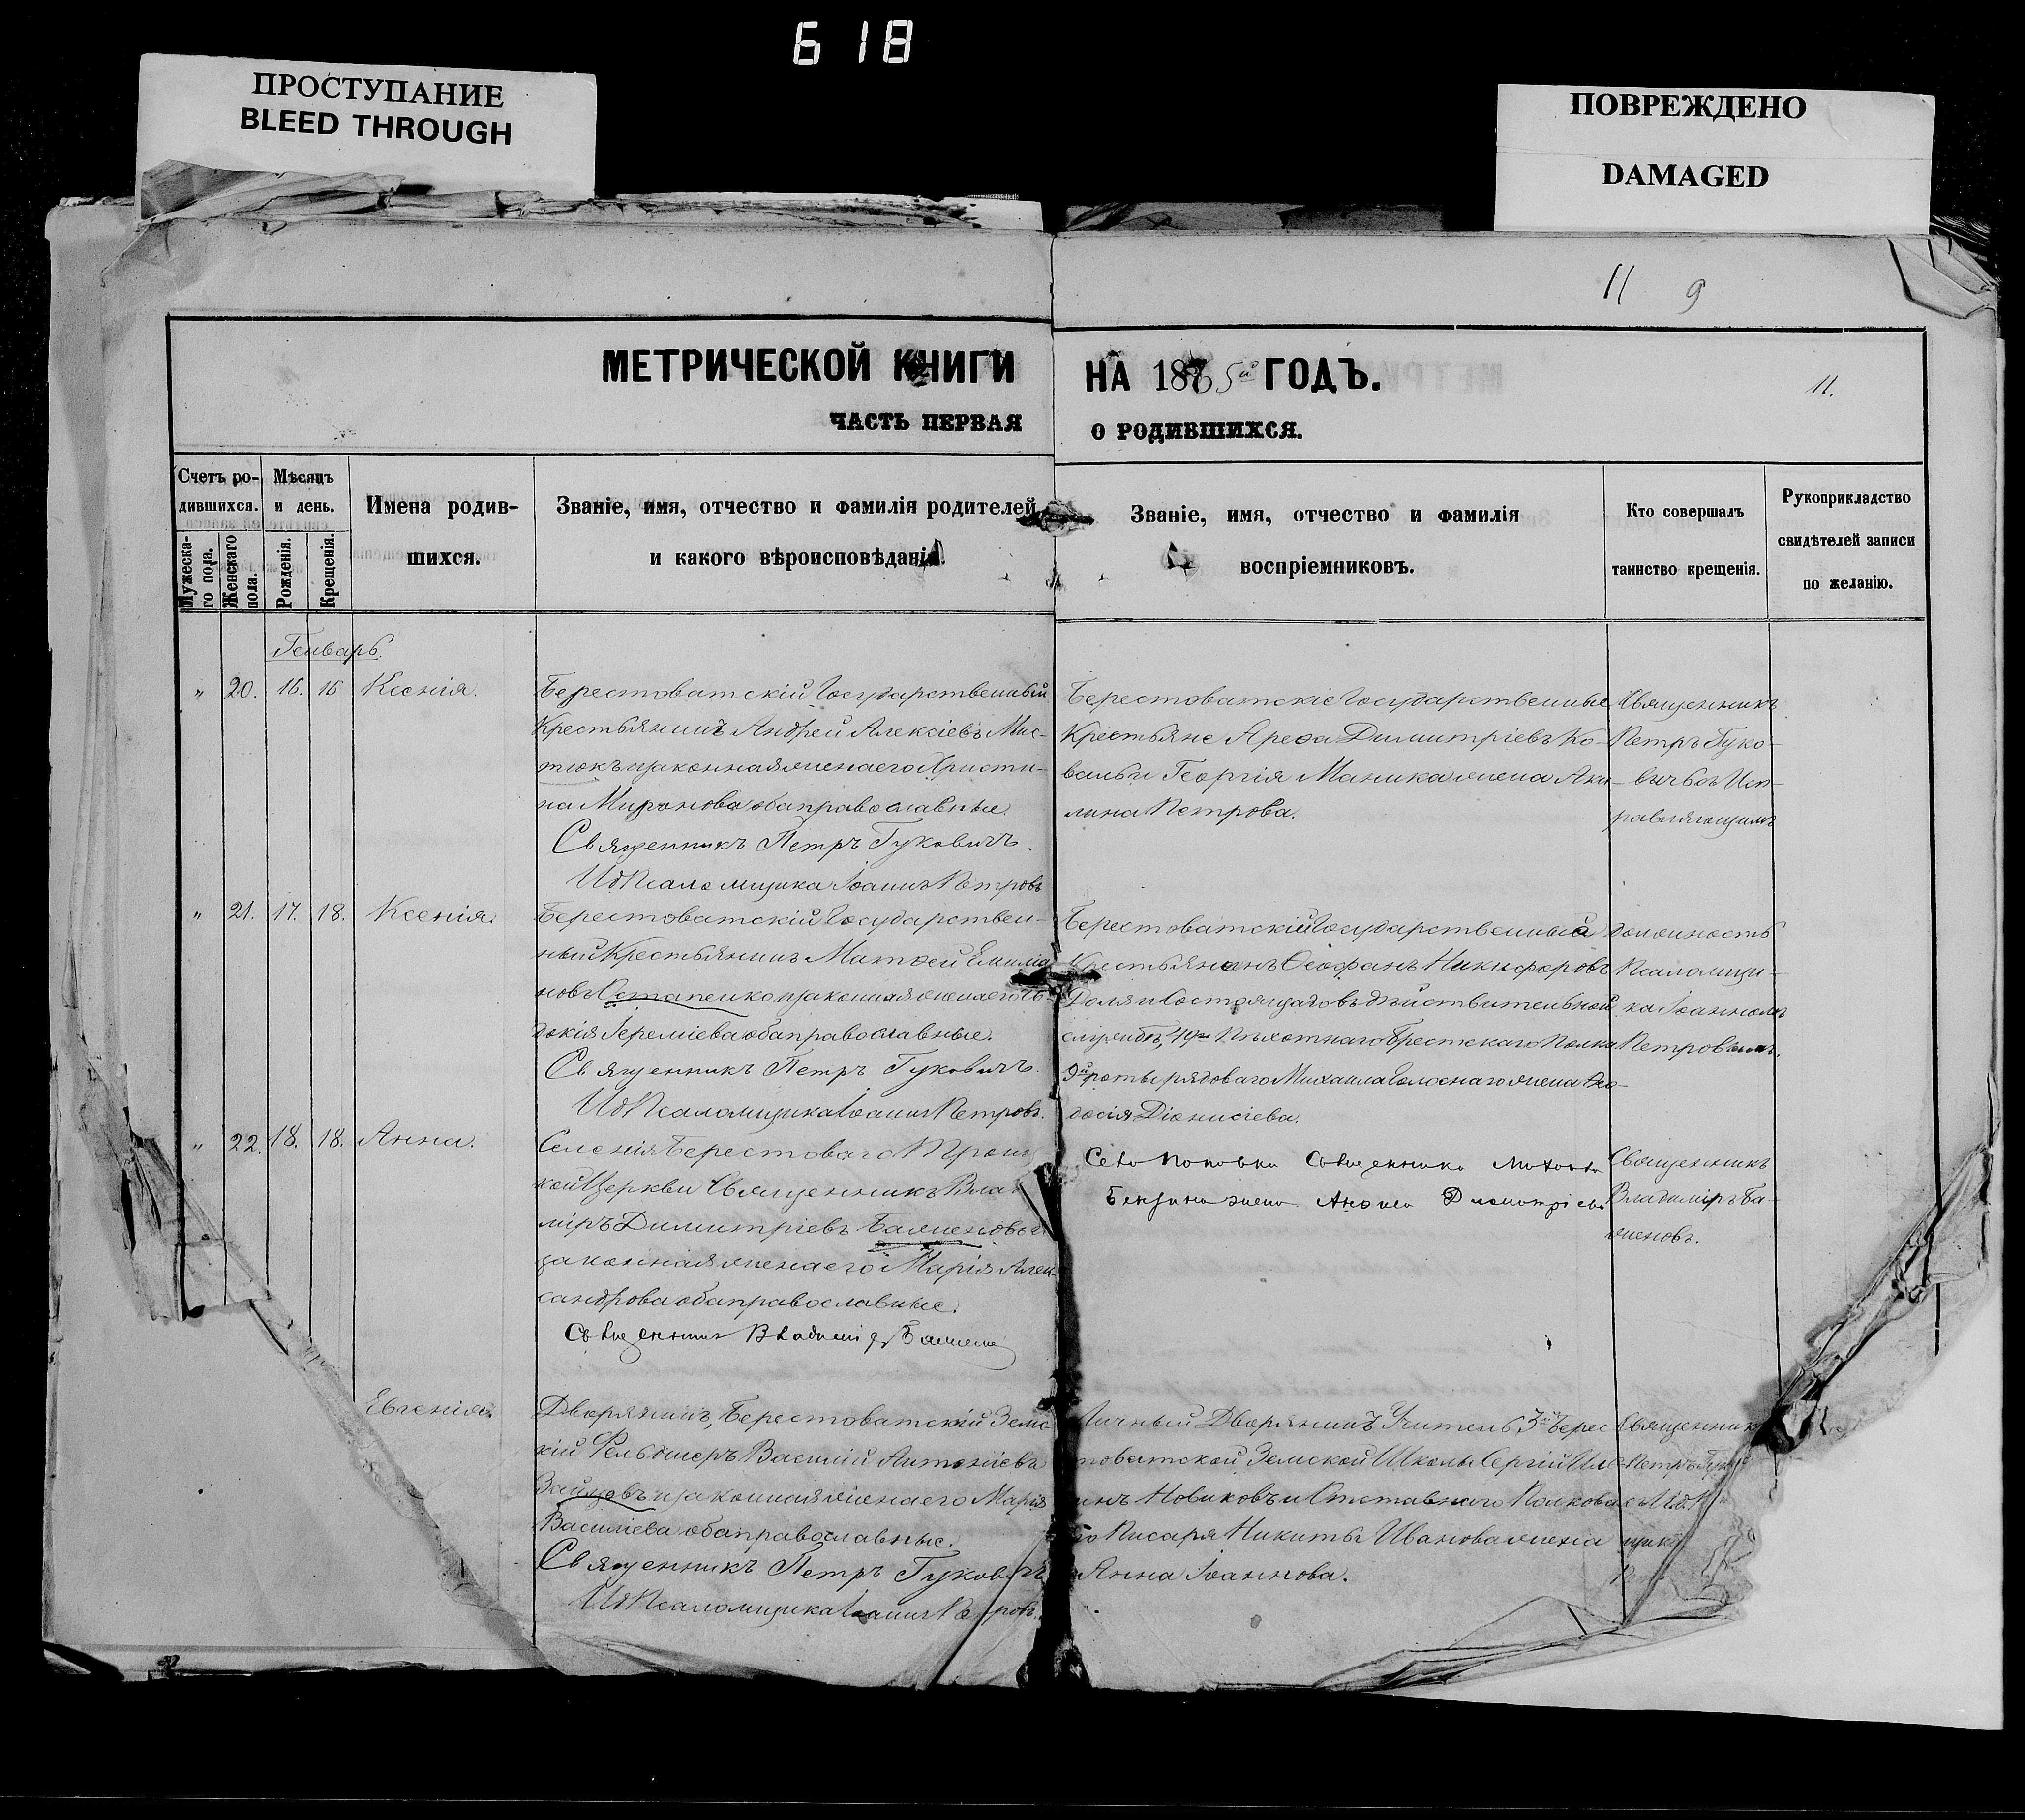 6 18
ПРОСТУПАНИЕ
BLEED THROUGH
ПОВРЕЖДЕНО
DAMAGED
11 9
МЕТРИЧЕСКОЙ КНИГИ НА 1885й ГОДЪ.
11.
ЧАСТЬ ПЕРВАЯ О РОДИВШИХСЯ.
Счетъ ро-
дившихся.
Мужеска-
го пола.
Женскаго
пола.
Мѣсяцъ
и день.
Рожденія.
Крещенія.
Имена родив-
шихся.
Званіе, имя, отчество и фамилія родителей
и какого вѣроисповѣданія.
Званіе, имя, отчество и фамилія
воспріемниковъ.
Кто совершалъ
таинство крещенія.
Рукоприкладство
свидѣтелей записи
по желанію.
Генварь.
" 20. 16. 16 Ксенія.
Берестоватскій Государственный
Крестьянинъ Андрей Алексіевъ Мис-
тюкъ и законная жена его Христи-
на Миронова оба православные.
Священникъ Петръ Гуковичъ.
Ид Псаломщика Іоаннъ Петровъ
Берестоватскіе Государственные
Крестьяне Ареѳа Димитріевъ Ко-
валь и Георгія Маника жена Аки-
лина Петрова.
Священникъ
Петръ Гуко-
вичъ съ Исп-
равляющимъ
" 21. 17. 18. Ксенія.
Берестоватскій Государствен-
ный Крестьянинъ Матѳей Емилiа
новъ Остапенко и законная жена его Ев-
докія Іереміева оба православные.
Священникъ Петръ Гуковичъ.
Ид Псаломщика Іоаннъ Петровъ.
Берестоватскій Государственный
Крестьянинъ Ѳеофанъ Никифоровъ
Доля и Состоящаго въ дѣйствительной
службѣ, 49го Пѣхотнаго Брестскаго Полка
9й роты рядоваго Михаила Голоснаго жена Ѳео-
досія Діонисіева.
должность
Псаломщи-
ка Іоанномъ
Петровымъ.
" 22. 18. 18. Анна.
Селенія Берестоваго Троиц
кой Церкви Священникъ Влади
міръ Димитріевъ Баженовъ и
законная жена его Марія Алек-
сандрова оба православные.
Священникъ Владиміръ Баженовъ
Села Поповки Священника
жена Димитріева
Священникъ
Владиміръ Ба-
женовъ.
Евгенія.
Дворянинъ, Берестоватскій Земс
кій Фельдшеръ Василій Антоніевъ
Зайцовъ и законная жена его Марія
Василіева оба православные.
Священникъ Петръ Гуковичъ
Ид Псаломщика Іоаннъ Петровъ.
Личный Дворянинъ Учитель 3й Берес
товатской Земской Школы Сергій Иль
инъ Новиковъ и Отставнаго Полкова
го Писаря Никиты Иванова жена
Анна Іоаннова.
Священникъ
Петръ Гук